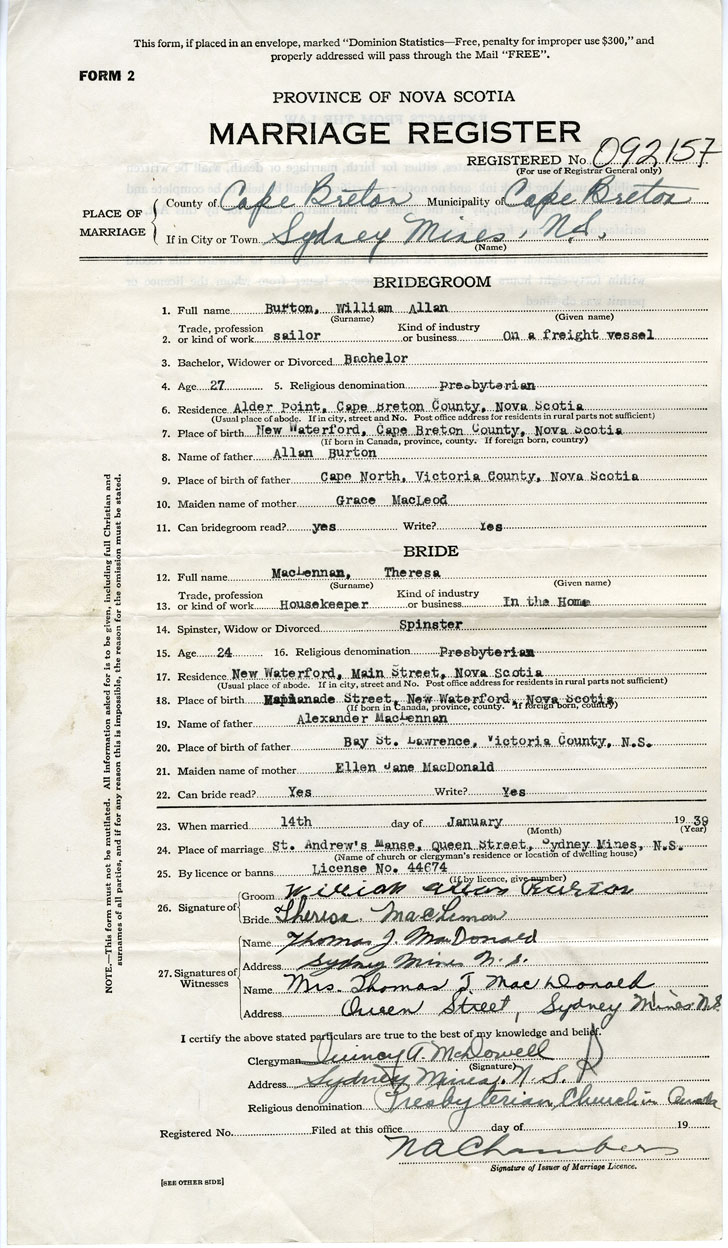 This form, if placed in an envelope, marked "Dominion Statistics—Free, penalty for improper use $300," and
properly addressed will pass through the Mail "FREE".
FORM 2
PROVINCE OF NOVA SCOTIA
MARRIAGE REGISTER
REGISTERED No. 092157
(For use of Registrar General only)
PLACE OF MARRIAGE
County of Cape Breton Municipality of Cape Breton
If in City or Town Sydney Mines, N.S.
(Name)
BRIDEGROOM
1. Full name Burton, William Allan
(Surname) (Given name)
2. Trade, profession or kind of work sailor Kind of industry or business On a freight vessel
3. Bachelor, Widower or Divorced Bachelor
4. Age 27 5. Religious denomination Presbyterian
6. Residence Alder Point, Cape Breton County, Nova Scotia
(Usual place of abode. If in city, street and No. Post office address for residents in rural parts not sufficient)
7. Place of birth New Waterford, Cape Breton County, Nova Scotia
(If born in Canada, province, county. If foreign born, country)
8. Name of father Allan Burton
9. Place of birth of father Cape North, Victoria County, Nova Scotia
10. Maiden name of mother Grace MacLeod
11. Can bridegroom read? yes Write? Yes
BRIDE
12. Full name MacLennan, Theresa
(Surname) (Given name)
13. Trade, profession or kind of work Housekeeper Kind of industry or business In the Home
14. Spinster, Widow or Divorced Spinster
15. Age 24 16. Religious denomination Presbyterian
17. Residence New Waterford, Main Street, Nova Scotia
(Usual place of abode. If in city, street and No. Post office address for residents in rural parts not sufficient)
18. Place of birth Street, New Waterford, Nova Scotia
(If born in Canada, province, county. If foreign born, country)
19. Name of father Alexander MacLennan
20. Place of birth of father Bay St. Lawrence, Victoria County, N.S.
21. Maiden name of mother Ellen Jane MacDonald
22. Can bride read? Yes Write? Yes
23. When married 14th day of January 1939
(Month) (Year)
24. Place of marriage St. Andrew's Manse, Queen Street, Sydney Mines, N.S.
(Name of church or clergyman's residence or location of dwelling house)
25. By licence or banns License No. 44674
(If by licence, give number)
26. Signature of
Groom William Allan Burton
Bride Theresa MacLennan
27. Signatures of Witnesses
Name Thomas J. MacDonald
Address Sydney Mines N.S.
Name Mrs. Thomas J. MacDonald
Address Queen Street, Sydney Mines N.S
I certify the above stated particulars are true to the best of my knowledge and belief.
Clergyman Quincy A. McDowell
(Signature)
Address Sydney Mines, N.S.
Religious denomination Presbyterian Church in Canada
Registered No. Filed at this office day of 19
N A Chambers
Signature of Issuer of Marriage Licence.
[SEE OTHER SIDE]
NOTE.—This form must not be mutilated. All information asked for is to be given, including full Christian and
surnames of all parties, and if for any reason this is impossible, the reason for the omission must be stated.